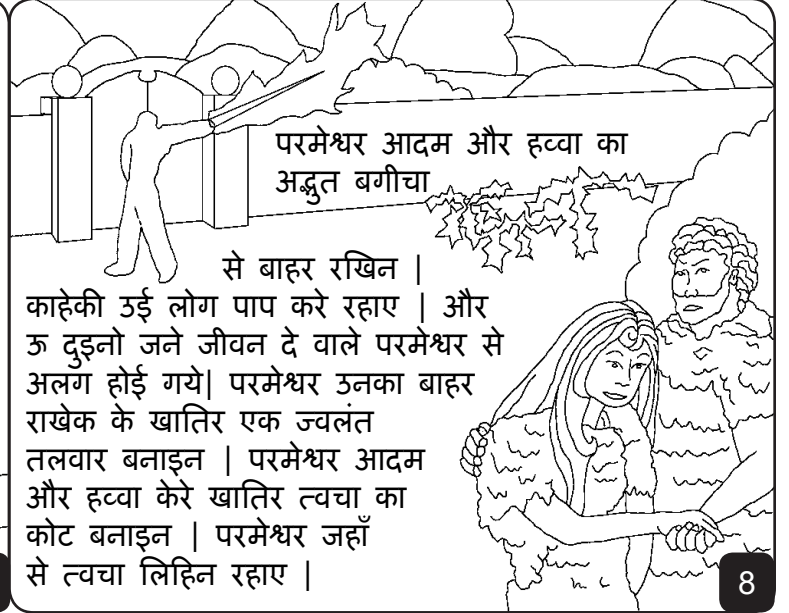 परमेश्वर आदम और हव्वा का
अद्भुत बगीचा
से बाहर रखिन |
काहेकी उई लोग पाप करे रहाए | और
ऊ दुइनो जने जीवन दे वाले परमेश्वर से
अलग होई गये| परमेश्वर उनका बाहर
राखेक के खातिर एक ज्वलंत
तलवार बनाइन | परमेश्वर आदम
और हव्वा केरे खातिर त्वचा का
कोट बनाइन | परमेश्वर जहाँ
से त्वचा लिहिन रहाए |
8